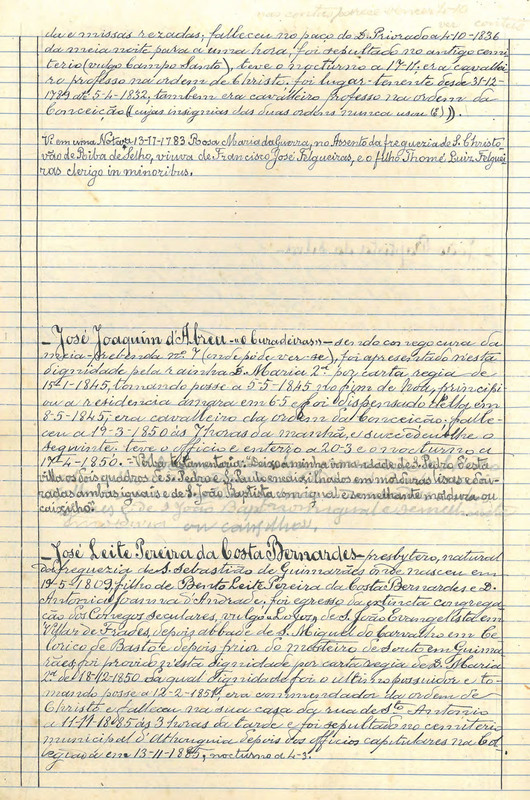 da e missas rezadas; falleceu no paço do D. Priorado a 4-10-1836
da meia noite para a uma hora, foi sepultado no antigo cemi-
terio (vulgo Campo Santo), teve o nocturno a 17-11; era cavallei-
ro professo na ordem de Christo, foi lugar-tenente desde 31-12-
1789 até 5-4-1832, tambem era cavalleiro professo na ordem da
Conceição (cujas insignias das duas ordens nunca usou (8)).
Vi em uma Nota a 13-11-1783 Rosa Maria da Guerra, no Assento da freguezia de S. Christo-
vão de Riba de Selho, viuva de Francisco José Felgueiras, e o filho Thomé Luiz Felguei-
ras clerigo in minoribus.
José Joaquim d'Abreu - "o Curadeiras" - sendo conego cura da
meia-prebenda nº 7 (onde póde ver-se), foi apresentado n'esta
dignidade pela rainha D. Maria 2ª por carta regia de
15-1-1845, tomando posse a 5-5-1845 no fim de Noa, principi-
ou a residencia amara em 6-5 e foi dispensado d'ella em
8-5-1845; era cavalleiro da ordem da Conceição; falle-
ceu a 19-3-1850 ás 7 horas da manhã, e succedeu-lhe o
seguinte; teve o officio e enterro a 20-3 e o nocturno a
17-4-1850. - Verba testamentaria: "Deixo a minha irmandade de S. Pedro d'esta
villa os dois quadros de S. Pedro e S. Paulo encaixilhados em molduras lisas e dou-
radas ambas iguais e de S. João Baptista com igual e semelhante moldura ou
caixilho."
José Leite Pereira da Costa Bernardes - presbytero, natural
da freguezia de S. Sebastião de Guimarães onde nasceu em
19-5-1809, filho de Bento Leite Pereira da Costa Bernardes e D.
Antonia Joanna d'Andrade; foi egresso da extincta congrega-
ção dos Conegos seculares, vulgo "Loyos" de S. João Evangelista em
Villar de Frades, depois abbade de S. Miguel do Carvalho em Ce-
lorico de Basto e depois prior do mosteiro de Souto em Guima-
rães, foi provido n'esta dignidade por carta regia de D. Maria
2ª de 18-12-1850 da qual dignidade foi o ultimo possuidor e to-
mando posse a 12-2-1851, era commendador da ordem de
Christo e falleceu na sua casa da rua de Stº Antonio
a 11-11-1885 ás 3 horas da tarde e foi sepultado no cemiterio
municipal d'Athouguia depois dos officios capitulares na Col-
legiada em 13-11-1885, nocturno a 4-3.